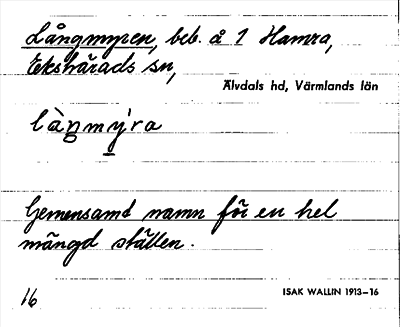 Långmyren, beb. å 1 Hamra,
Ekshärads sn,
Älvdals hd, Värmlands län
làŋmy̠'ra
Gemensamt namn för en hel
mängd ställen.
16
ISAK WALLIN 1913–16